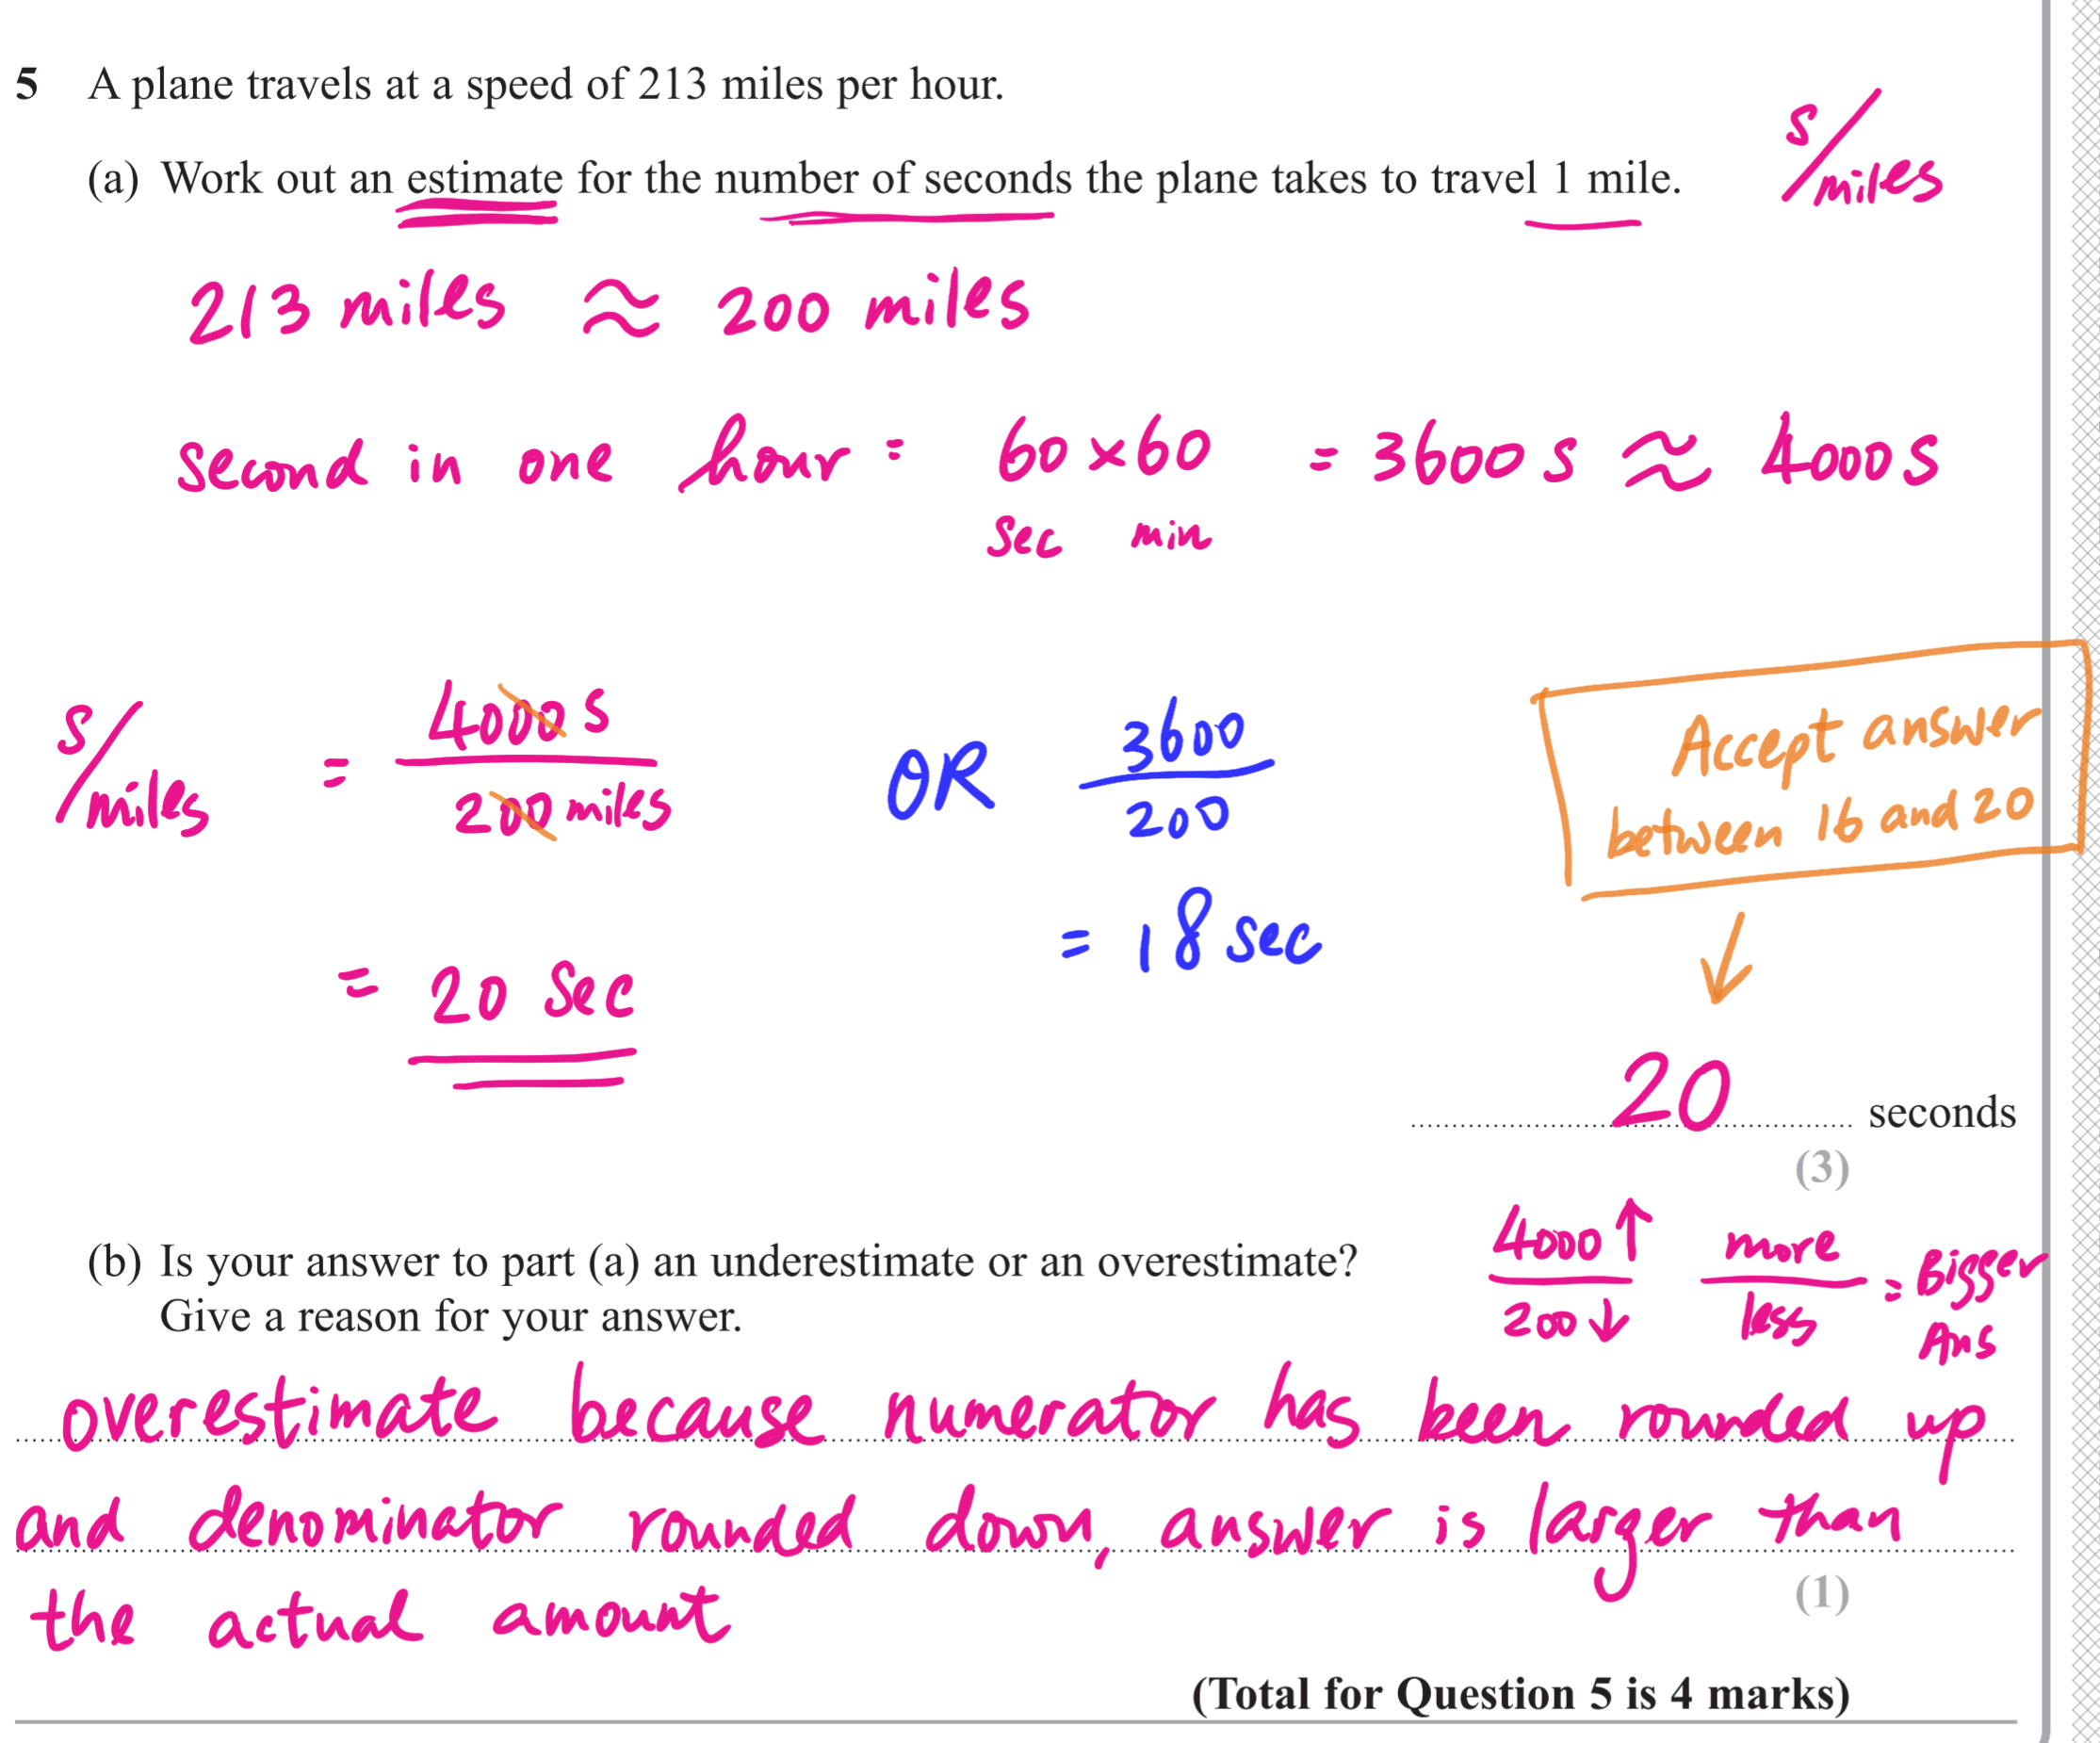 5 A plane travels at a speed of 213 miles per hour.
(a) Work out an estimate for the number of seconds the plane takes to travel 1 mile.
s/miles
213 miles ≈ 200 miles
second in one hour = 60 × 60 = 3600 s ≈ 4000 s
sec min
s/miles = 4000 s / 200 miles OR 3600 / 200
Accept answer
between 16 and 20
= 20 sec
= 18 sec
20 seconds
(3)
(b) Is your answer to part (a) an underestimate or an overestimate?
Give a reason for your answer.
4000 ↑ / 200 ↓ more / less = Bigger
Ans
overestimate because numerator has been rounded up
and denominator rounded down, answer is larger than
(1)
the actual amount
(Total for Question 5 is 4 marks)